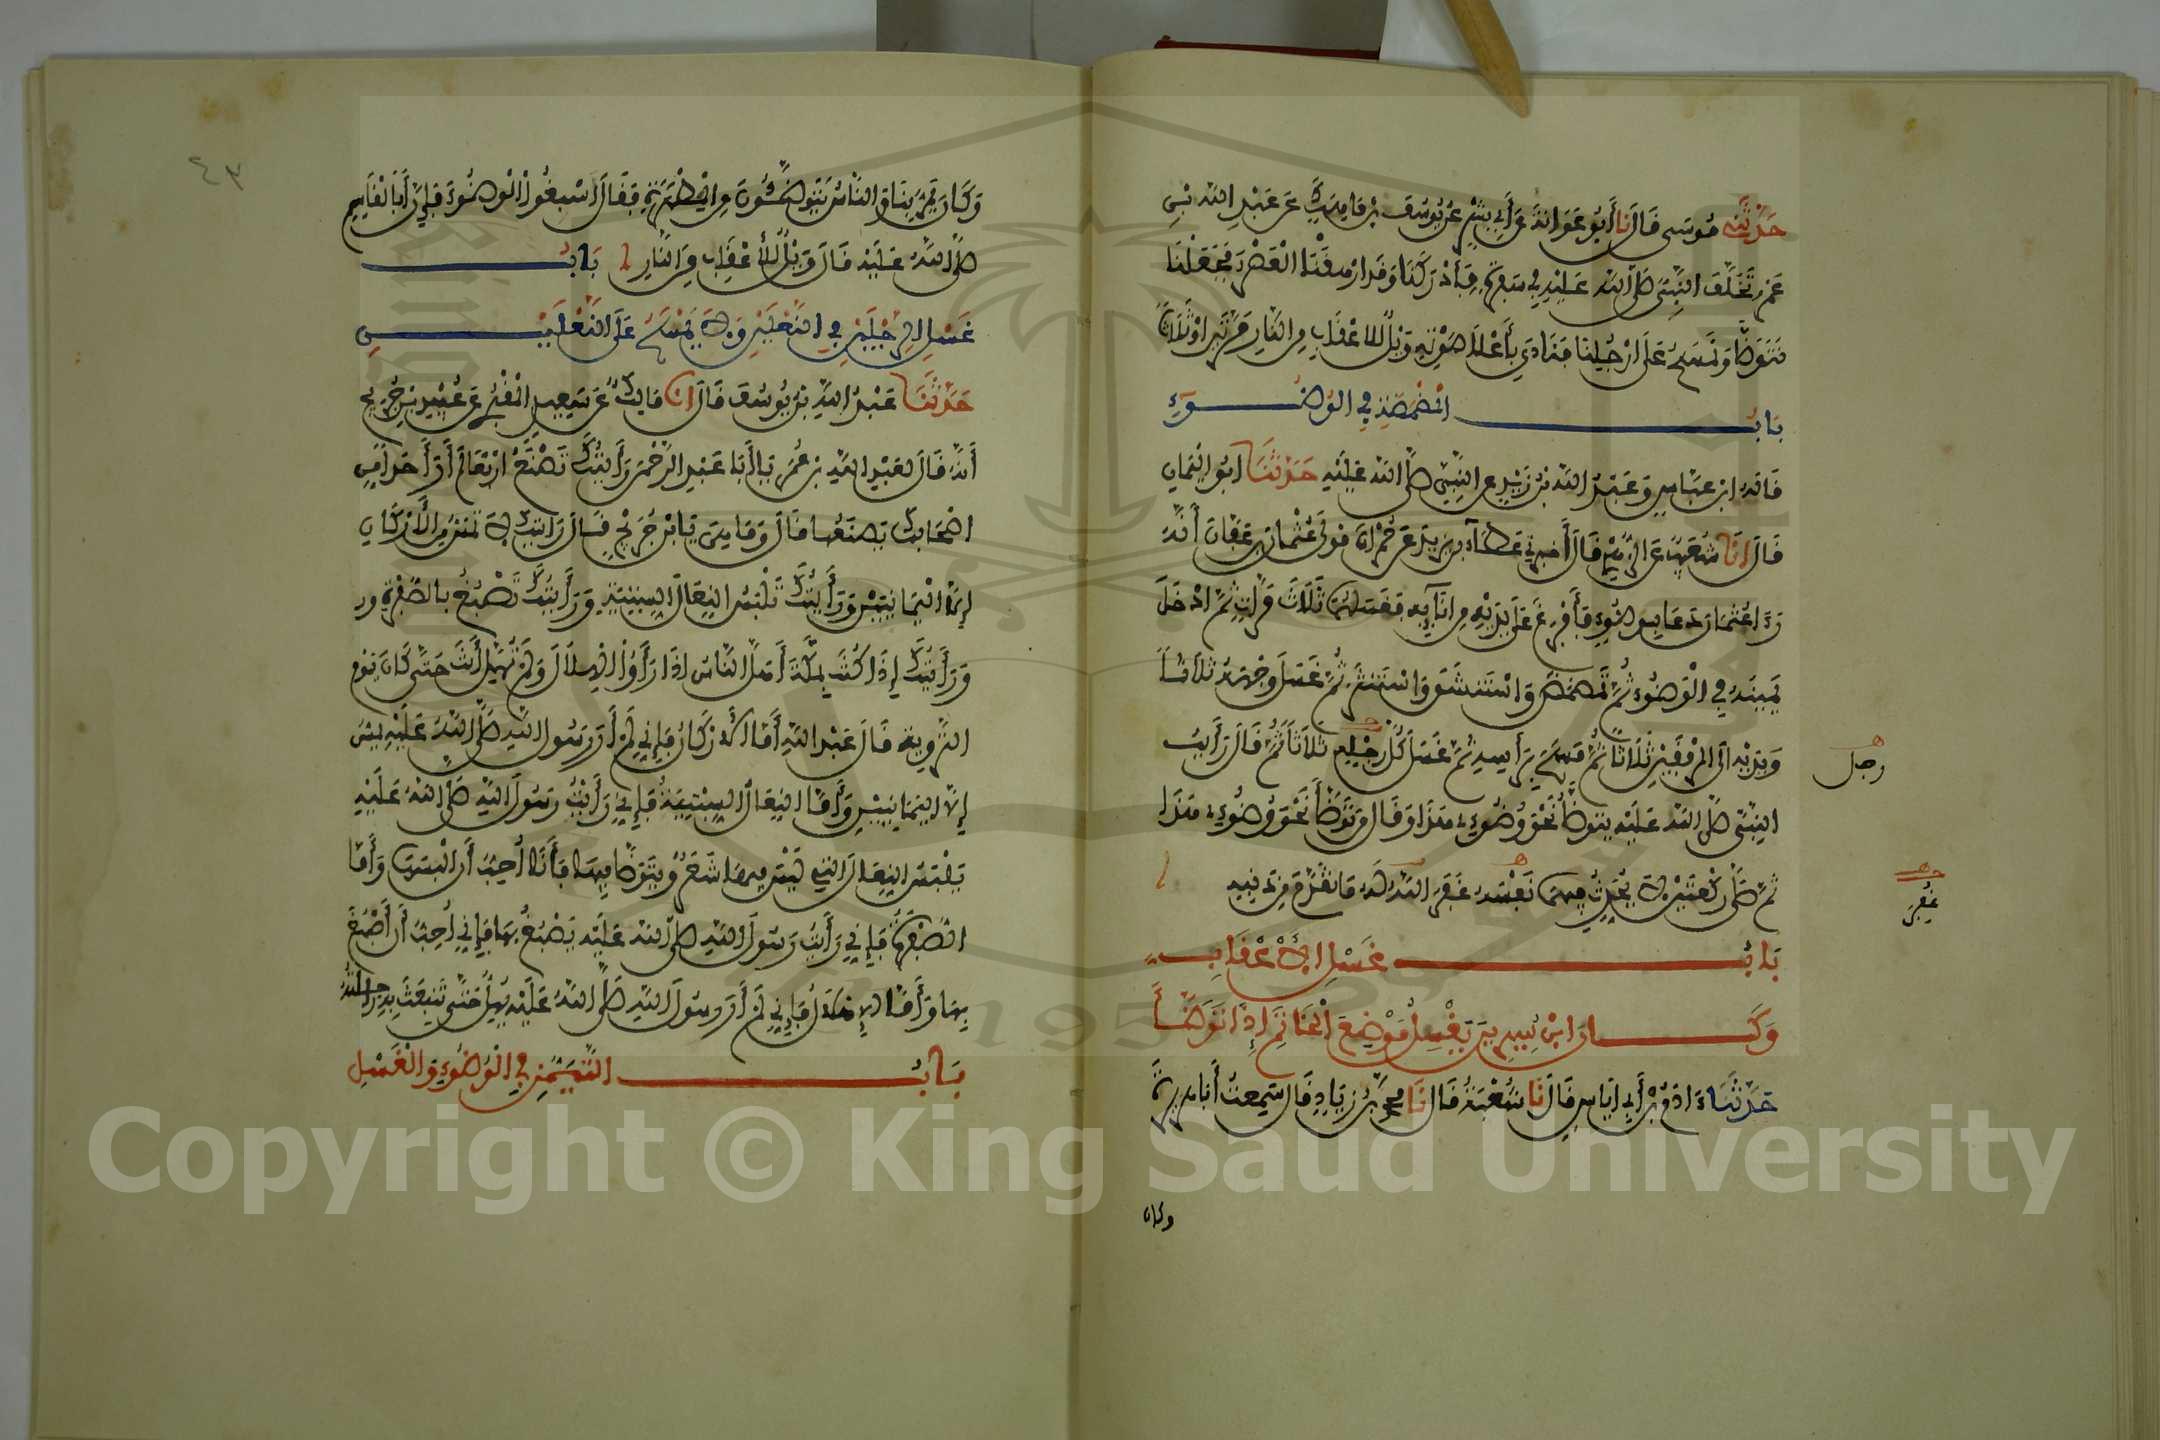 حدثني موسى قال نا أبو عوانة عن أبي بشر عن يوسف بن ماهك عن عبد الله بن
عمر تخلف النبي صلى الله عليه في سفرة فأدركنا وقد ارهقنا العصر فجعلنا
نتوضأ ونمسح على ارجلنا فنادى بأعلا صوته ويل للاعقاب من النار مرتين او ثلاثا
باب المضمضة في الوضوء
قاله ابن عباس وعبد الله بن زيد عن النبي صلى الله عليه حدثنا ابو اليمان
قال انا شعيب عن الزهري قال أخبرني عطاء بن يزيد عن حمران مولى عثمان بن عفان أنه
رءا عثمان دعا بوضوء فأفرغ على يديه من انآيه فغسلهما ثلاث مرات ثم ادخل
يمينه في الوضوء ثم تمضمض واستنشق واستنثر ثم غسل وجهه ثلاثا
ويديه الى المرفقين ثلاثا ثم مسح برأسه ثم غسل كل رجليه ثلاثا ثم قال رأيت
رجل
النبي صلى الله عليه يتوضأ نحو وضوءي هذا وقال من توضأ نحو وضوءي هذا
ثم صلى ركعتين لا يحدث فيهما نفسه غفر الله له ما تقدم من ذنبه
غفر
باب غسل الأعقاب
وكان ابن سيرين يغسل موضع الخاتم إذا توضأ
حدثنا ءادم بن أبي اياس قال نا شعبة قال نا محمد بن زياد قال سمعت أبا هريرة
وكان
٤٣
وكان يمر بنا والناس يتوضئون من المطهرة فقال اسبغوا الوضوء فإن أبا القاسم
صلى الله عليه قال ويل للأعقاب من النار باب
غسل الرجلين في النعلين ولا يمسح على النعلين
حدثنا عبد الله بن يوسف قال انا مالك عن سعيد المقبري عن عبيد بن جريج
أنه قال لعبد الله بن عمر يا أبا عبد الرحمن رأيتك تصنع اربعا لم أر أحدا من
اصحابك يصنعها قال وما هي يا ابن جريج قال رأيتك لا تمس من الأركان
إلا اليمانيين ورأيتك تلبس النعال السبتية ورأيتك تصبغ بالصفرة ور
ورأيتك إذا كنت بمكة أهل الناس اذا رأوا الهلال ولم تهل أنت حتى كان يوم
التروية قال عبد الله أما الأركان فإني لم أر رسول الله صلى الله عليه يمس
إلا اليمانيين وأما النعال السبتية فإني رأيت رسول الله صلى الله عليه
يلبس النعال التي ليس فيها شعر ويتوضأ فيها فأنا أحب أن البسها وأما
الصفرة فإني رأيت رسول الله صلى الله عليه يصبغ بها فإني أحب أن أصبغ
بها وأما الإهلال فإني لم أر رسول الله صلى الله عليه يهل حتى تنبعث به راحلته
باب التيمن في الوضوء والغسل
Copyright © King Saud University